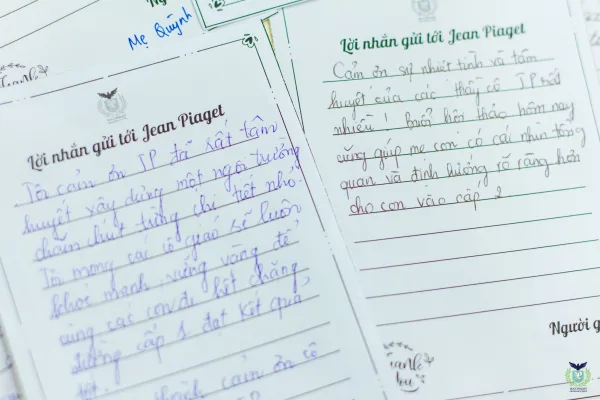 Mẹ Quỳnh
Lời nhắn gửi tới Jean Piaget
Tôi cảm ơn JP đã rất tâm
huyết xây dựng một ngôi trường
chăm chút từng chi tiết nhỏ.
Tôi mong các cô giáo sẽ luôn
khoẻ mạnh, vững vàng để
cùng các con đi hết chặng
đường cấp 1 đạt kết quả
tốt.
cảm ơn cô
Lời nhắn gửi tới Jean Piaget
Cảm ơn sự nhiệt tình và tâm
huyết của các thầy cô JP rất
nhiều! Buổi hội thảo hôm nay
cũng giúp mẹ con có cái nhìn tổng
quan và định hướng rõ ràng hơn
cho con vào cấp 2
Người g